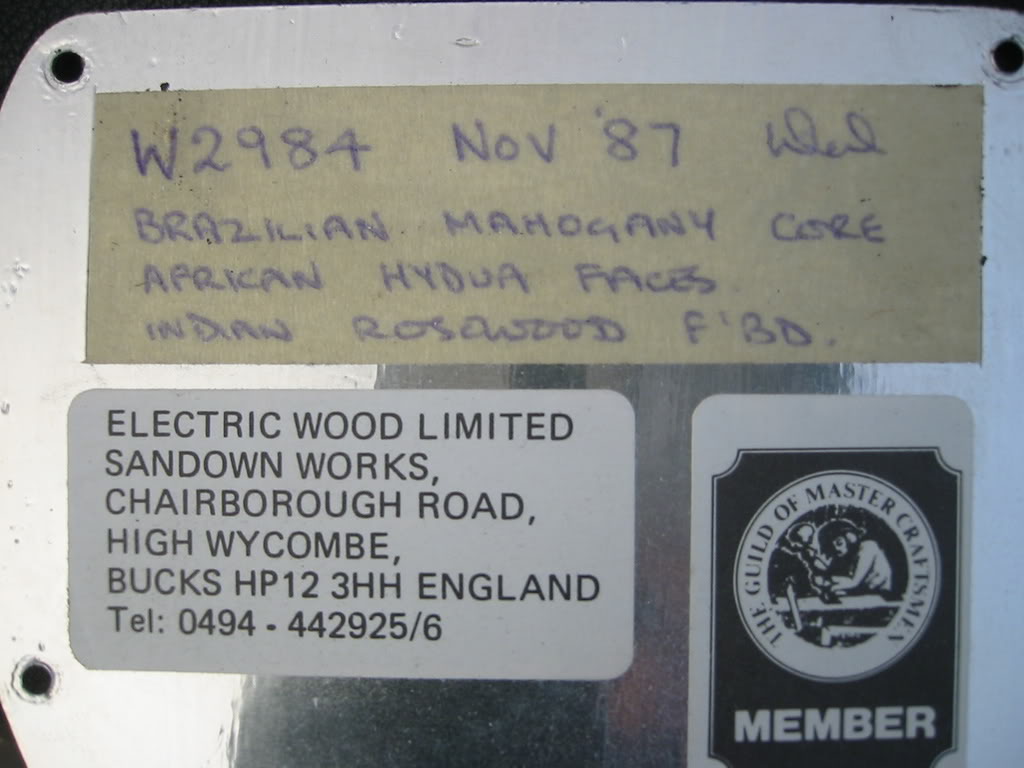 W2984 Nov '87
BRAZILIAN MAHOGANY CORE
AFRICAN HYDUA FACES
INDIAN ROSEWOOD F'BD.
ELECTRIC WOOD LIMITED
SANDOWN WORKS,
CHAIRBOROUGH ROAD,
HIGH WYCOMBE,
BUCKS HP12 3HH ENGLAND
Tel: 0494 - 442925/6
THE GUILD OF MASTER CRAFTSMEN
MEMBER